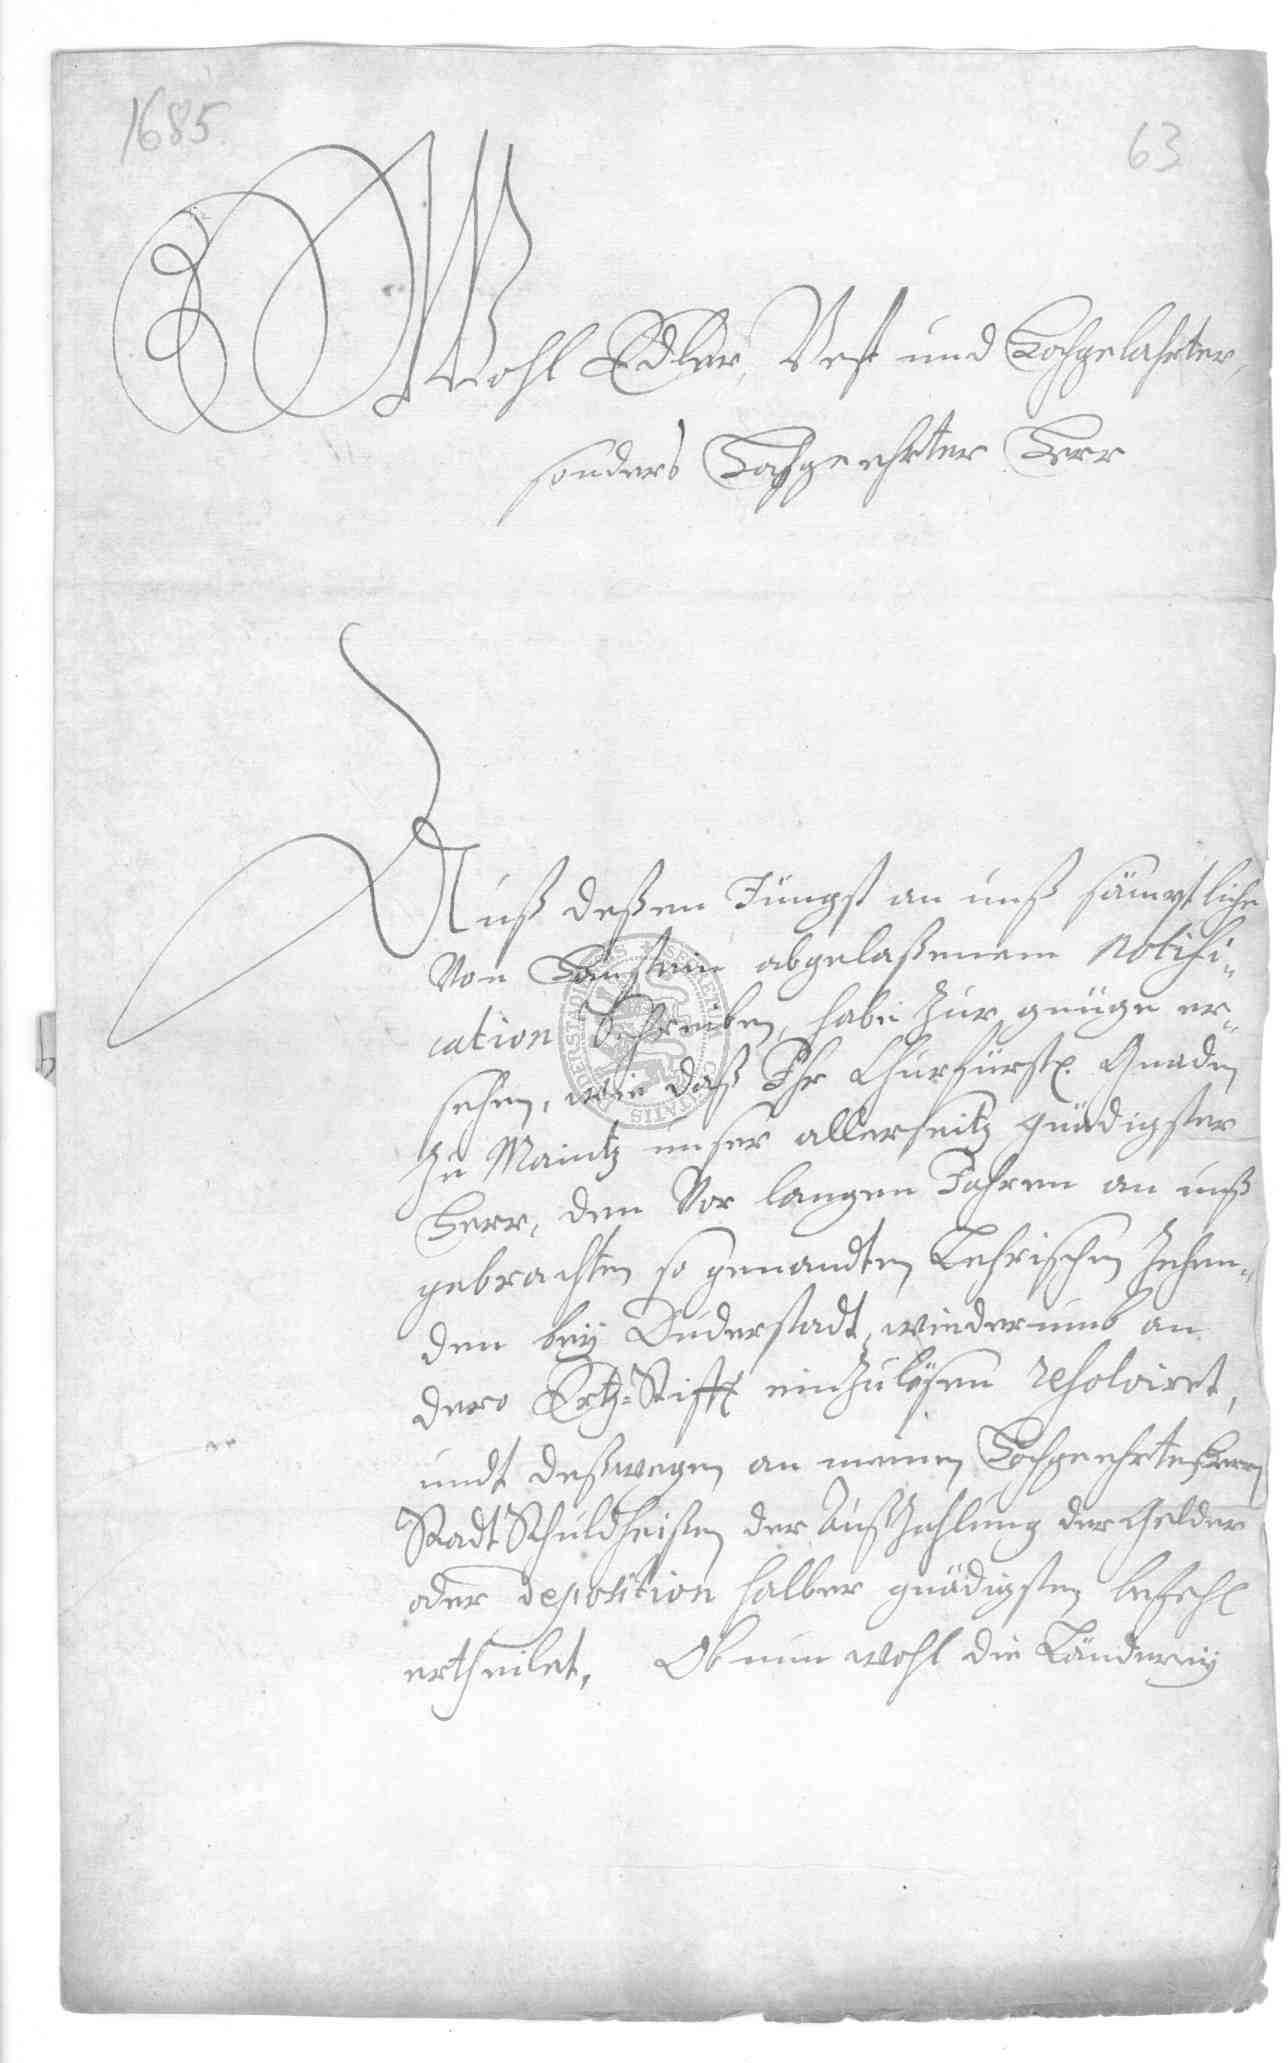 1685.
63
Wohl Edler, Vest und Hochgelahrter,
sonders Hochgeehrter Herr
Auß deßen Jüngst an unß sämptliche
Von Hanstein abgelaßenem Notifi-
cation Schreiben, habe Zur gnüge er-
sehen, wie daß Ihr Churfürstl. Gnaden
Zu Maintz unser allerseitz gnädigster
Herr, den Vor langen Jahren an unß
gebrachten so genandten Lehrischen Zehen-
den bey Duderstadt, wiederumb an
dero Ertz-Stifft einZulösen resolviret,
undt deßwegen an meinen Hochgeehrten Herrn
Stadt Schuldheißen der AußZahlung der Gelder
oder deposition halber gnädigsten befehl
ertheilet. Ob nun wohl die Länderey